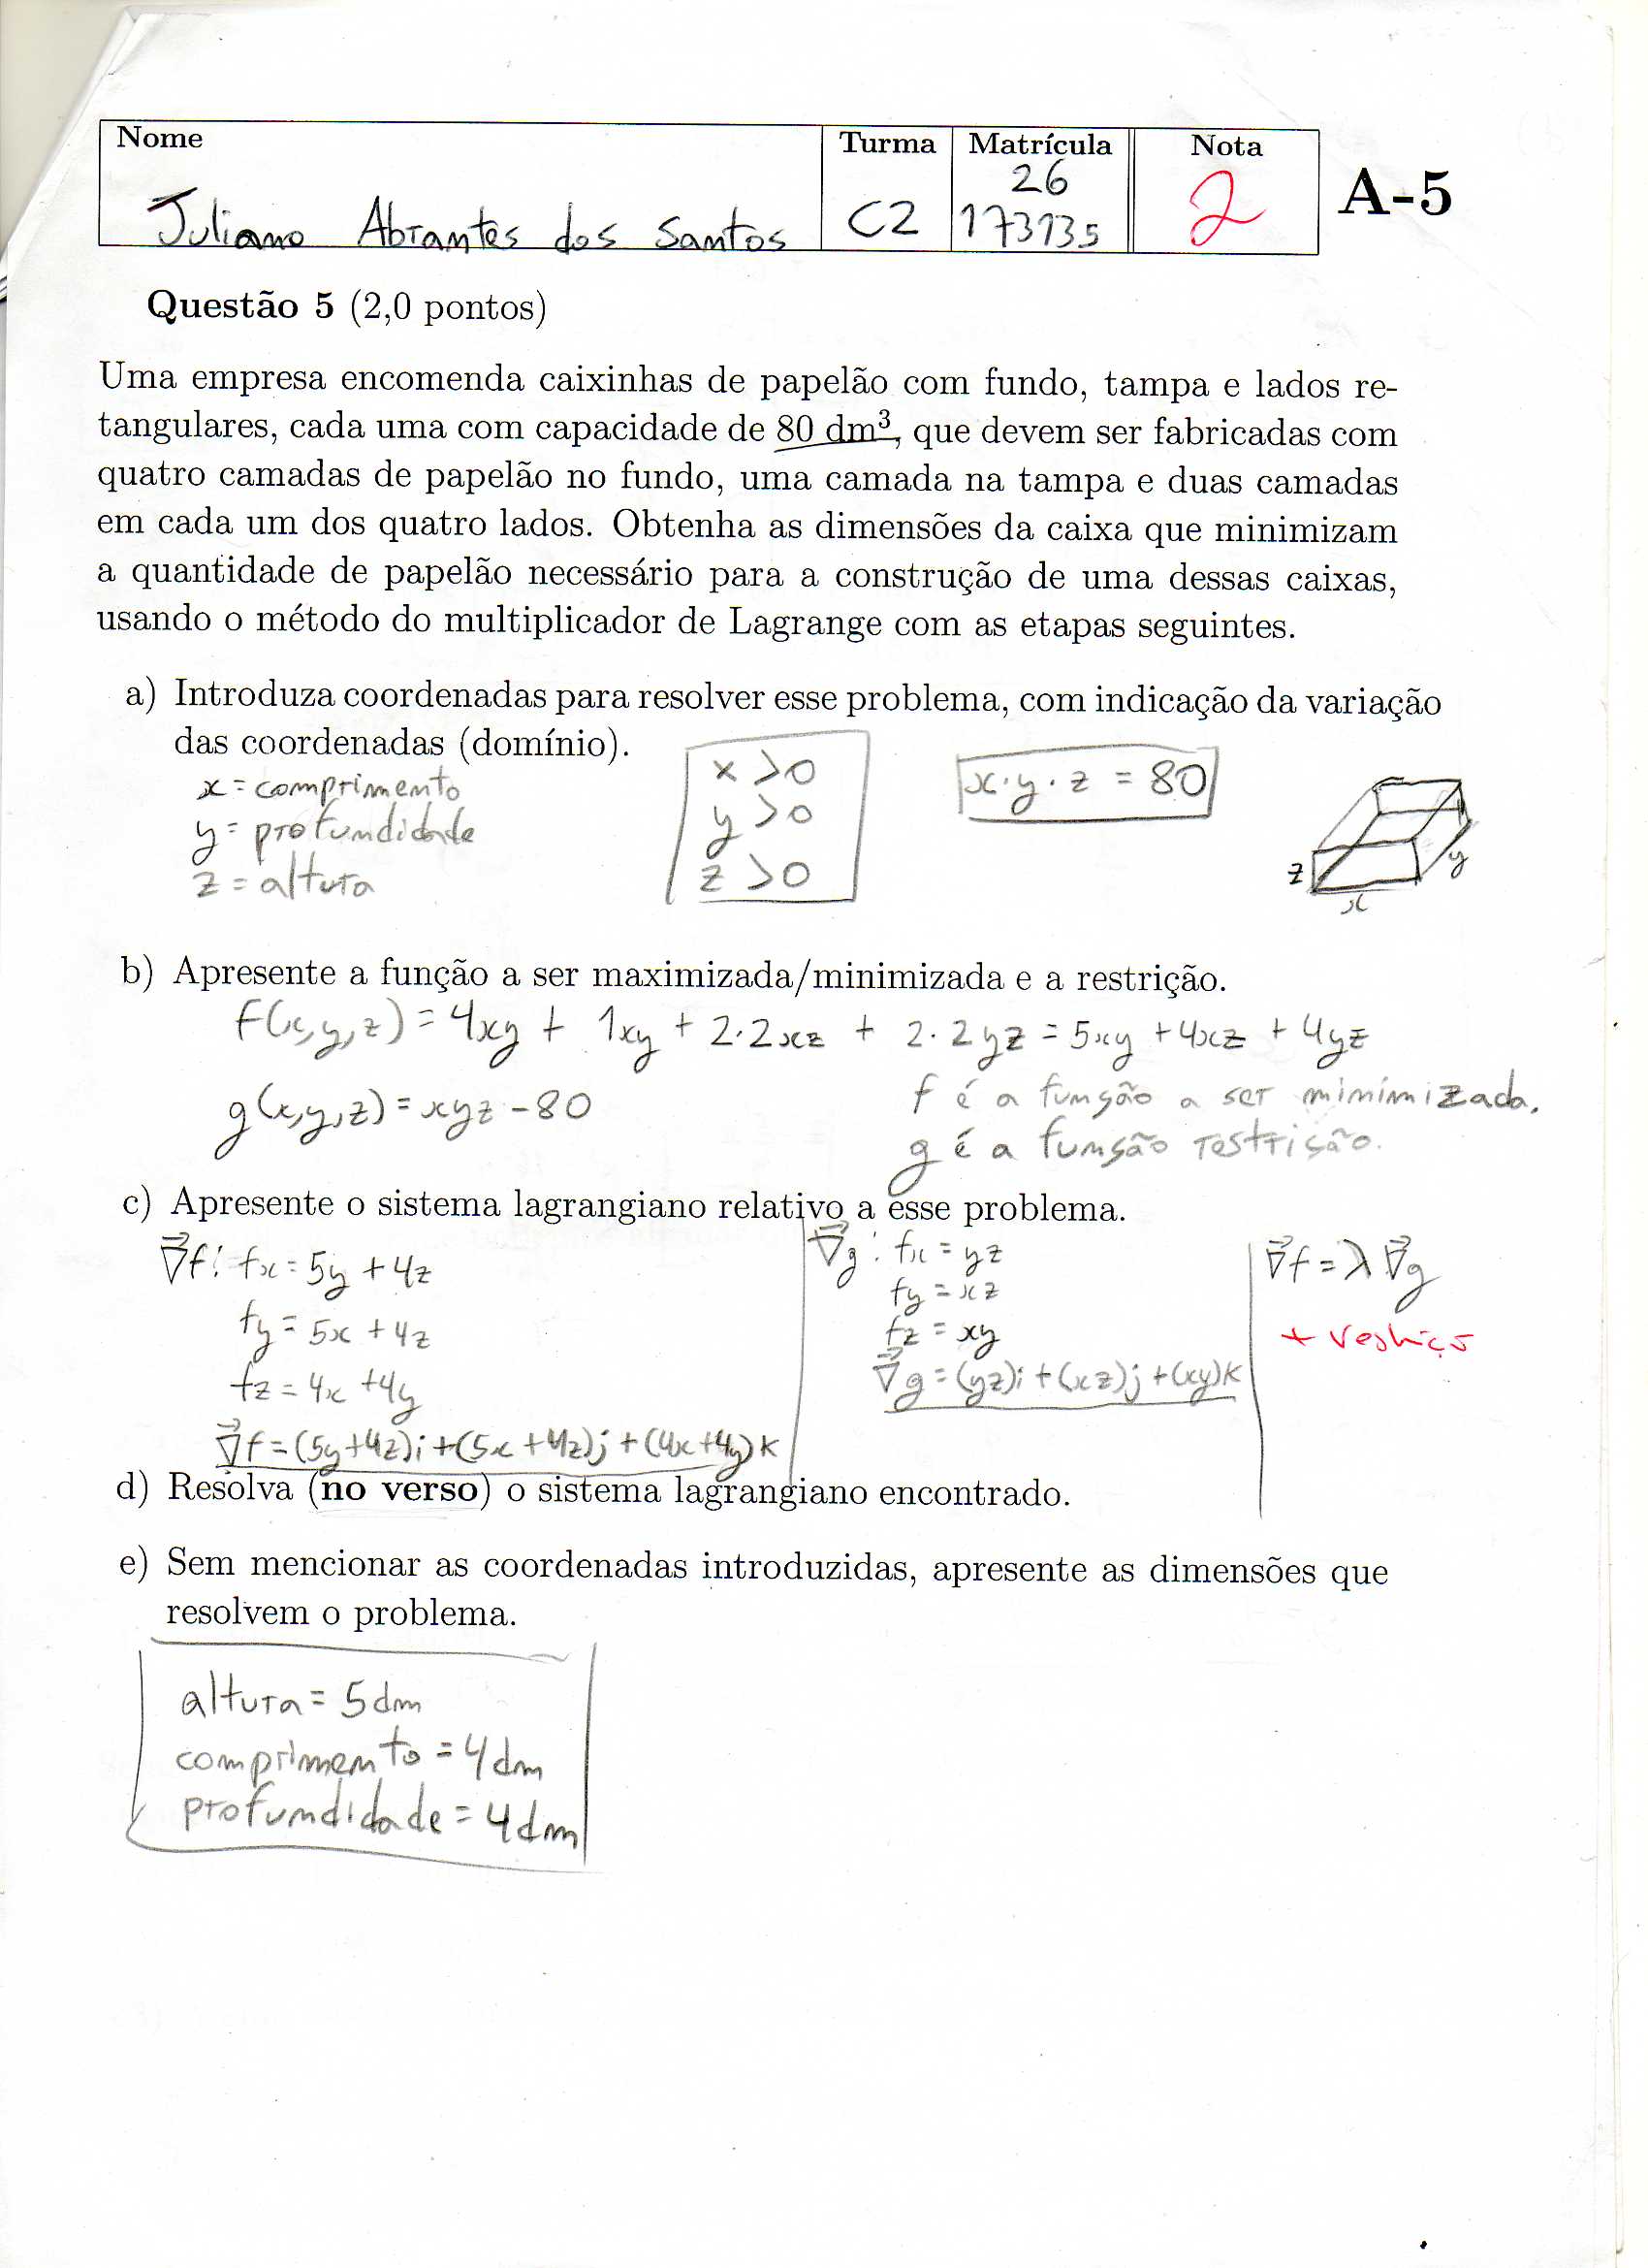 Nome Turma Matrícula Nota
26
Juliano Abrantes dos Santos C2 173135 2 A-5
Questão 5 (2,0 pontos)
Uma empresa encomenda caixinhas de papelão com fundo, tampa e lados re-
tangulares, cada uma com capacidade de 80 dm³, que devem ser fabricadas com
quatro camadas de papelão no fundo, uma camada na tampa e duas camadas
em cada um dos quatro lados. Obtenha as dimensões da caixa que minimizam
a quantidade de papelão necessário para a construção de uma dessas caixas,
usando o método do multiplicador de Lagrange com as etapas seguintes.
a) Introduza coordenadas para resolver esse problema, com indicação da variação
das coordenadas (domínio).
x = comprimento x > 0 x·y·z = 80
y = profundidade y > 0
z = altura z > 0
z x y
b) Apresente a função a ser maximizada/minimizada e a restrição.
f(x,y,z) = 4xy + 1xy + 2·2xz + 2·2yz = 5xy + 4xz + 4yz
g(x,y,z) = xyz - 80 f é a função a ser minimizada.
g é a função restrição.
c) Apresente o sistema lagrangiano relativo a esse problema.
∇⃗f: fx = 5y + 4z ∇⃗g: fx = yz ∇⃗f = λ∇⃗g
fy = 5x + 4z fy = xz + restriç
fz = 4x + 4y fz = xy
∇⃗g = (yz)i + (xz)j + (xy)k
∇⃗f = (5y+4z)i + (5x+4z)j + (4x+4y)k
d) Resolva (no verso) o sistema lagrangiano encontrado.
e) Sem mencionar as coordenadas introduzidas, apresente as dimensões que
resolvem o problema.
altura = 5dm
comprimento = 4dm
profundidade = 4dm